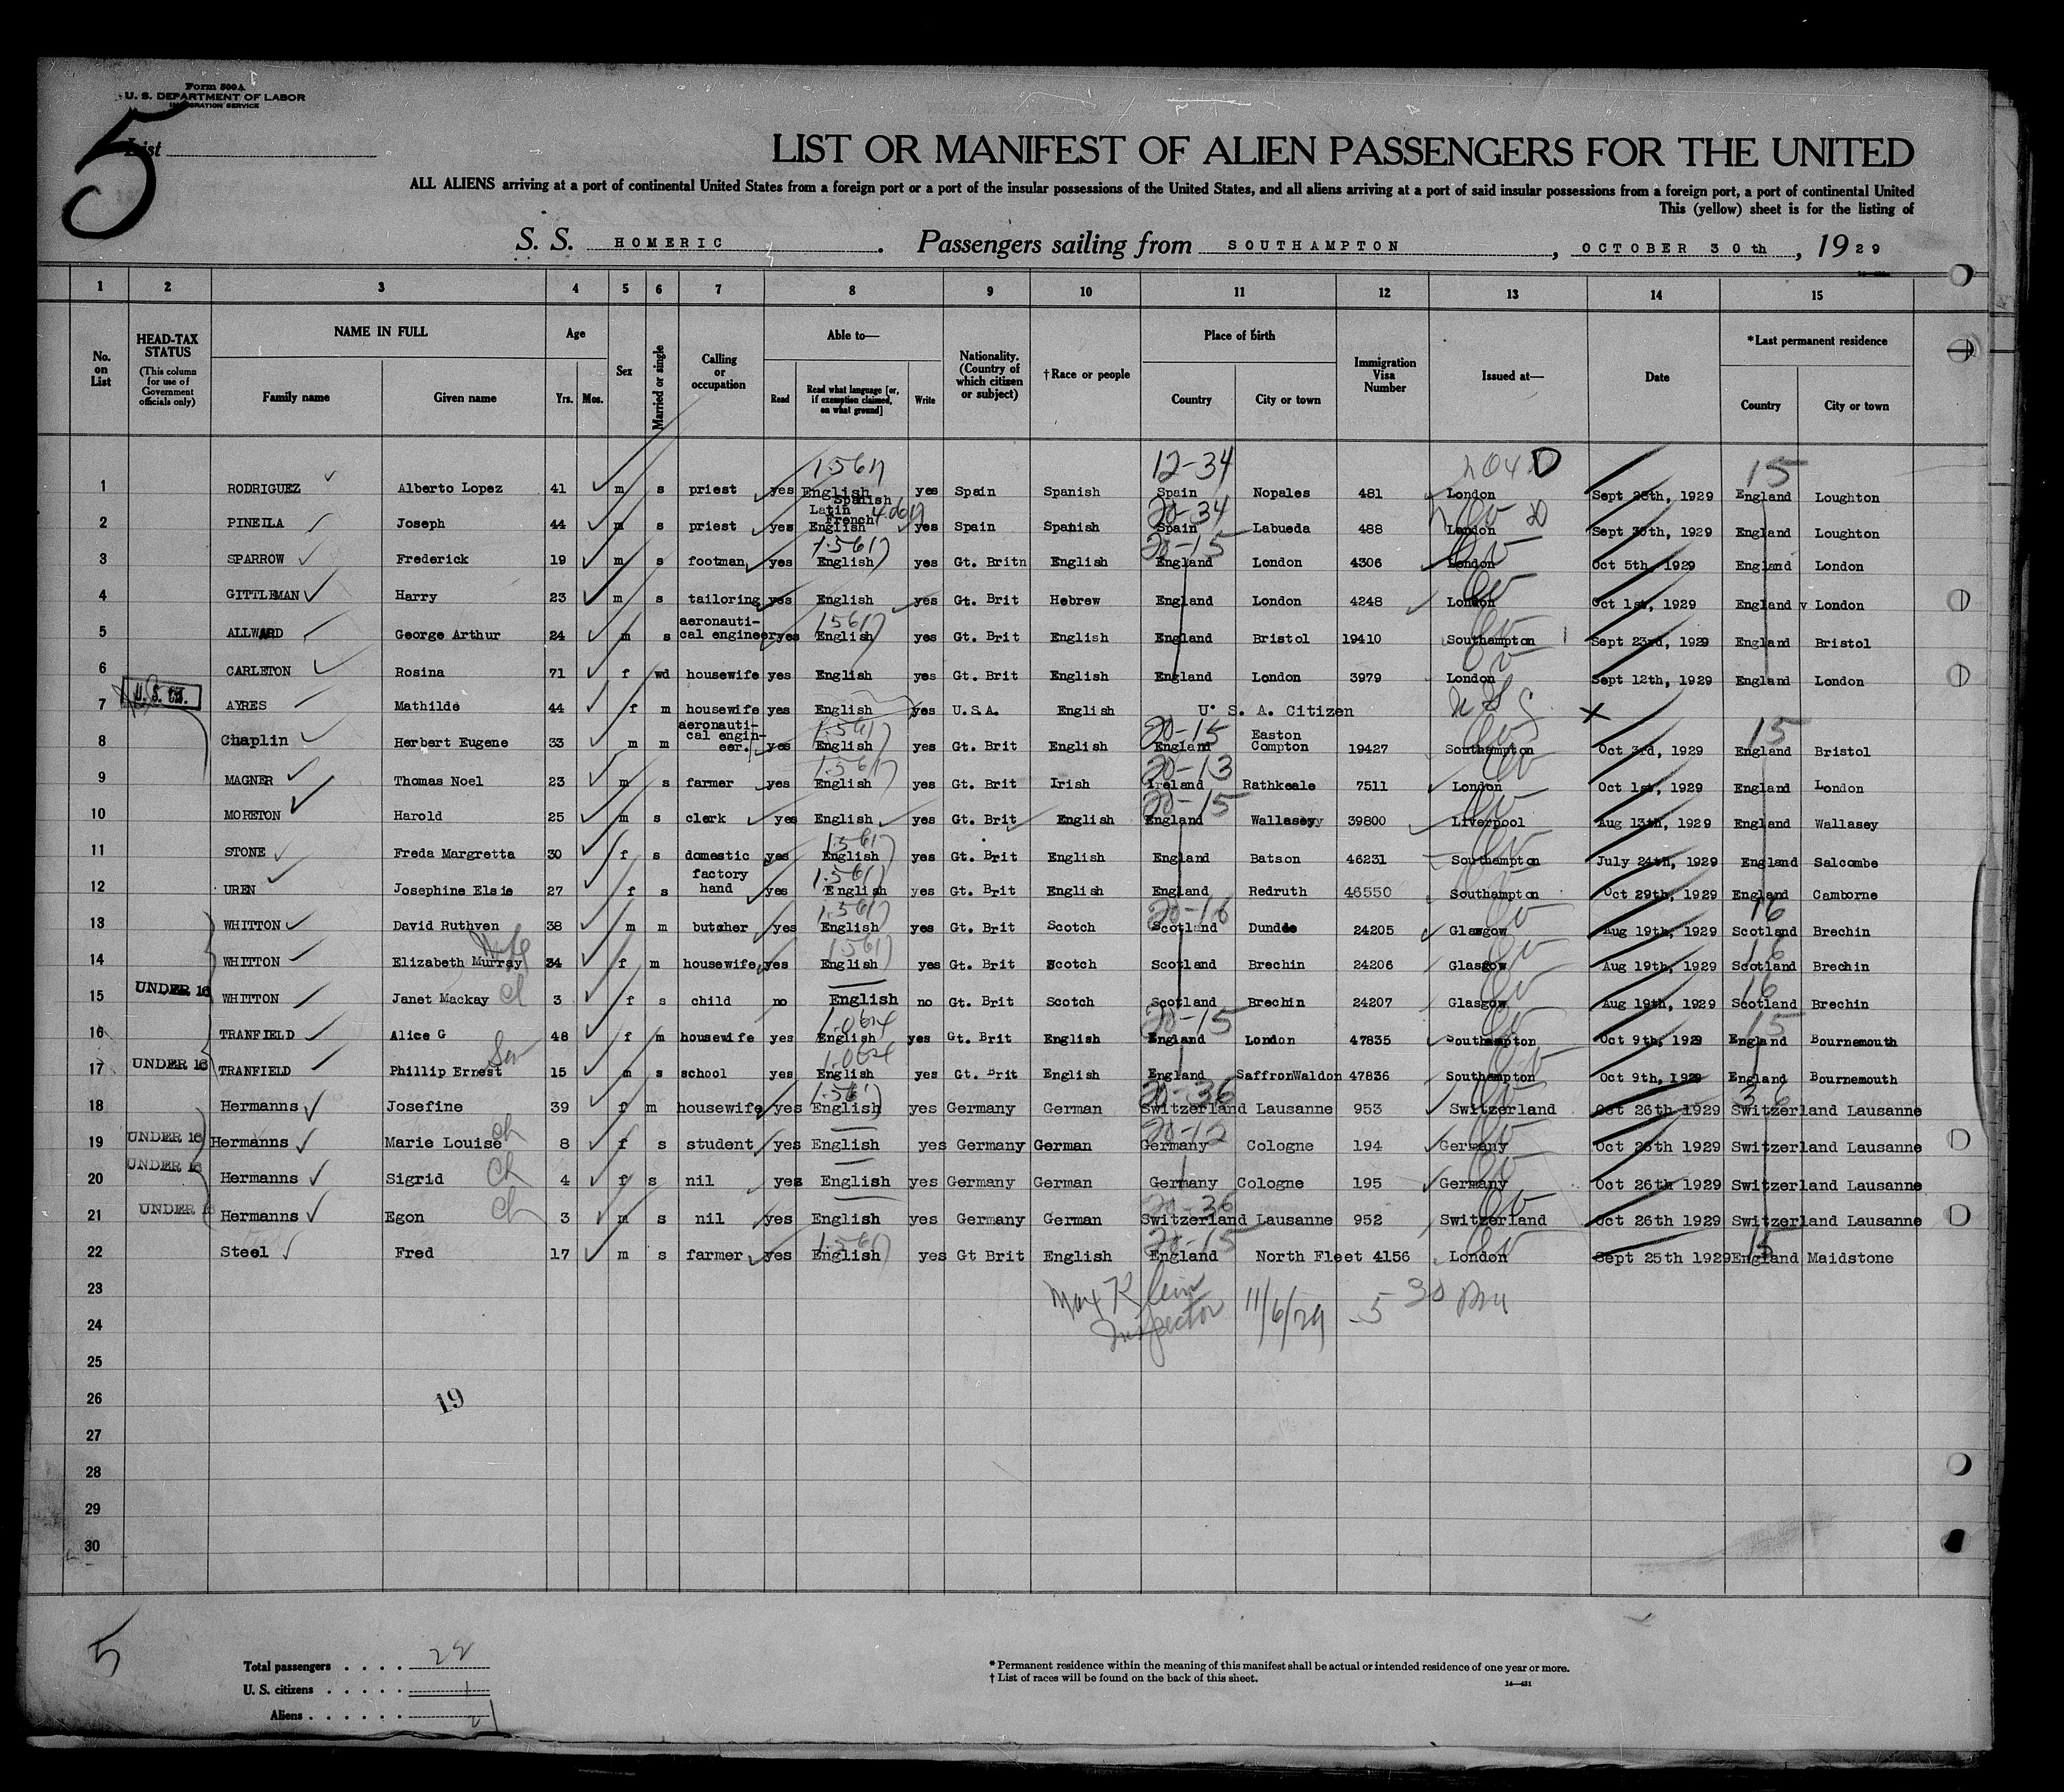 Form 500A
U. S. DEPARTMENT OF LABOR
IMMIGRATION SERVICE
5
List
LIST OR MANIFEST OF ALIEN PASSENGERS FOR THE UNITED
ALL ALIENS arriving at a port of continental United States from a foreign port or a port of the insular possessions of the United States, and all aliens arriving at a port of said insular possessions from a foreign port, a port of continental United
This (yellow) sheet is for the listing of
S. S. HOMERIC . Passengers sailing from SOUTHAMPTON , OCTOBER 30th , 1929
1 2 3 4 5 6 7 8 9 10 11 12 13 14 15
No. on List
HEAD-TAX STATUS
(This column for use of Government officials only)
NAME IN FULL
Family name Given name
Age
Yrs. Mos.
Sex
Married or single
Calling or occupation
Able to—
Read
Read what language [or, if exemption claimed, on what ground]
Write
Nationality. (Country of which citizen or subject)
†Race or people
Place of birth
Country City or town
Immigration Visa Number
Issued at—
Date
*Last permanent residence
Country City or town
12-34 15
1 RODRIGUEZ Alberto Lopez 41 m s priest yes English Spanish yes Spain Spanish Spain Nopales 481 London Sept 28th, 1929 England Loughton
20-34
2 PINEILA Joseph 44 m s priest yes Latin French English yes Spain Spanish Spain Labueda 488 London Sept 30th, 1929 England Loughton
20-15
3 SPARROW Frederick 19 m s footman yes English yes Gt. Britn English England London 4306 London Oct 5th, 1929 England London
4 GITTLEMAN Harry 23 m s tailoring yes English yes Gt. Brit Hebrew England London 4248 London Oct 1st, 1929 England v London
5 ALLWARD George Arthur 24 m s aeronauti-cal engineer yes English yes Gt. Brit English England Bristol 19410 Southampton Sept 23rd, 1929 England Bristol
6 CARLETON Rosina 71 f wd housewife yes English yes Gt. Brit English England London 3979 London Sept 12th, 1929 England London
U. S. Cit.
7 AYRES Mathilde 44 f m housewife yes English yes U.S.A. English U. S. A. Citizen x
20-15 15
8 Chaplin Herbert Eugene 33 m m aeronauti-cal engin-eer. yes English yes Gt. Brit English England Easton Compton 19427 Southampton Oct 3rd, 1929 England Bristol
20-13
9 MAGNER Thomas Noel 23 m s farmer yes English yes Gt. Brit Irish Ireland Rathkeale 7511 London Oct 1st, 1929 England London
20-15
10 MORETON Harold 25 m s clerk yes English yes Gt. Brit English England Wallaseyy 39800 Liverpool Aug 13th, 1929 England Wallasey
11 STONE Freda Margretta 30 f s domestic yes English yes Gt. Brit English England Batson 46231 Southampton July 24th, 1929 England Salcombe
12 UREN Josephine Elsie 27 f s factory hand yes English yes Gt. Brit English England Redruth 46550 Southampton Oct 29th, 1929 England Camborne
20-16 16
13 WHITTON David Ruthven 38 m m butcher yes English yes Gt. Brit Scotch Scotland Dundee 24205 Glasgow Aug 19th, 1929 Scotland Brechin
Wife
14 WHITTON Elizabeth Murray 34 f m housewife yes English yes Gt. Brit Scotch Scotland Brechin 24206 Glasgow Aug 19th, 1929 Scotland Brechin
16
15 UNDER 16 WHITTON Janet Mackay 3 f s child no English no Gt. Brit Scotch Scotland Brechin 24207 Glasgow Aug 19th, 1929 Scotland Brechin
20-15 15
16 TRANFIELD Alice G 48 f m housewife yes English yes Gt. Brit English England London 47835 Southampton Oct 9th, 1929 England Bournemouth
17 UNDER 16 TRANFIELD Phillip Ernest 15 m s school yes English yes Gt. Brit English England SaffronWaldon 47836 Southampton Oct 9th, 1929 England Bournemouth
20-36 36
18 Hermanns Josefine 39 f m housewife yes English yes Germany German Switzerland Lausanne 953 Switzerland Oct 26th 1929 Switzerland Lausanne
20-12
19 UNDER 16 Hermanns Marie Louise ch 8 f s student yes English yes Germany German Germany Cologne 194 Germany Oct 26th 1929 Switzerland Lausanne
20 UNDER 16 Hermanns Sigrid ch 4 f s nil yes English yes Germany German Germany Cologne 195 Germany Oct 26th 1929 Switzerland Lausanne
20-36
21 UNDER 16 Hermanns Egon ch 3 m s nil yes English yes Germany German Switzerland Lausanne 952 Switzerland Oct 26th 1929 Switzerland Lausanne
20-15 15
22 Steel Fred 17 m s farmer yes English yes Gt Brit English England North Fleet 4156 London Sept 25th 1929 England Maidstone
23 Max Klein
24 Inspector 11/6/29
25
26 19
27
28
29
30
5
Total passengers . . . . 22
U. S. citizens . . . . . 1
Aliens . . . . . . 21
* Permanent residence within the meaning of this manifest shall be actual or intended residence of one year or more.
† List of races will be found on the back of this sheet.
14—431